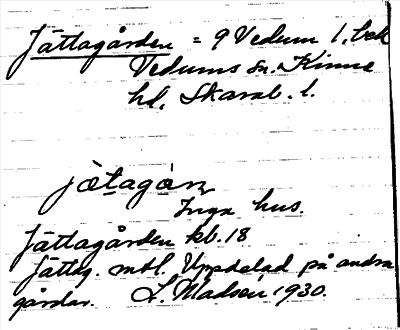 Jättagården = 9 Vedum 1. bek
Vedums sn. Kinne
hd. Skarab. l.
jætagárn
Inga hus.
Jättagården kb. 18
Jättag. mtl. Uppdelad på andra
gårdar. L. Madsén 1930.